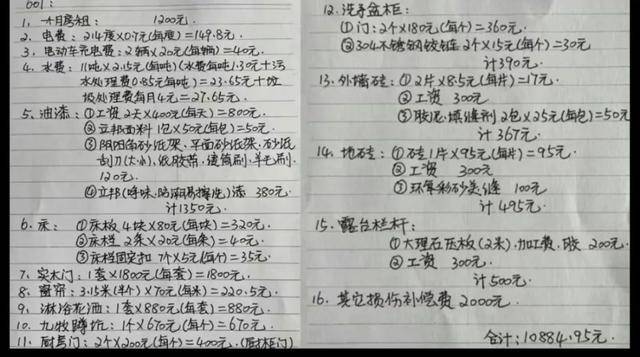 601:
1. 一个月房租: 1200元.
2. 电费: 214度×0.7元(每度)=149.8元.
3. 电动车充电费: 2辆×20元(每辆)=40元.
4. 水费: 11吨×2.15元(每吨)(水费每吨1.30元+污
水处理费0.85元每吨)=23.65元+垃
圾处理费每月4元=27.65元.
5. 油漆: ①工资 2天×400元(每天)=800元.
②立邦面料 1包×50元(每包)=50元.
③阴阳角砂纸架、平面砂纸架、砂纸
刮刀(大小)、纸胶带、滚筒刷、羊毛刷.
120元.
④立邦(呼味、防潮易擦洗)漆 380元.
计1350元.
6. 床: ①床板 4块×80元(每块)=320元.
②床栏 2条×20元(每条)=40元.
③床栏固定扣 7个×5元(个)=35元.
7. 实木门: 1套×1800元(每套)=1800元.
8. 窗帘: 3.15米(半个)×70元(每米)=220.5元.
9. 淋浴花洒: 1套×880元(每套)=880元.
10. 九牧蹲坑: 1个×670元(每个)=670元.
11. 厨房门: 2个×200元(每个)=400元. (厨柜门)
12. 洗手盆柜:
①门: 2个×180元(每个)=360元.
②304不锈钢铰链 2个×15元(每个)=30元
计390元.
13. 外墙砖: ①2片×8.5元(每片)=17元.
②工资 300元
③胶泥、填缝剂 2包×25元(每包)=50元
计367元.
14. 地砖: ①砖1片×95元(每片)=95元.
②工资 300元
③环氧彩砂美缝 100元
计495元.
15. 露台栏杆:
①大理石压板(2米)、加工费、胶 200元.
②工资 300元.
计500元.
16. 其它损伤补偿费 2000元.
合计: 10884.95元.